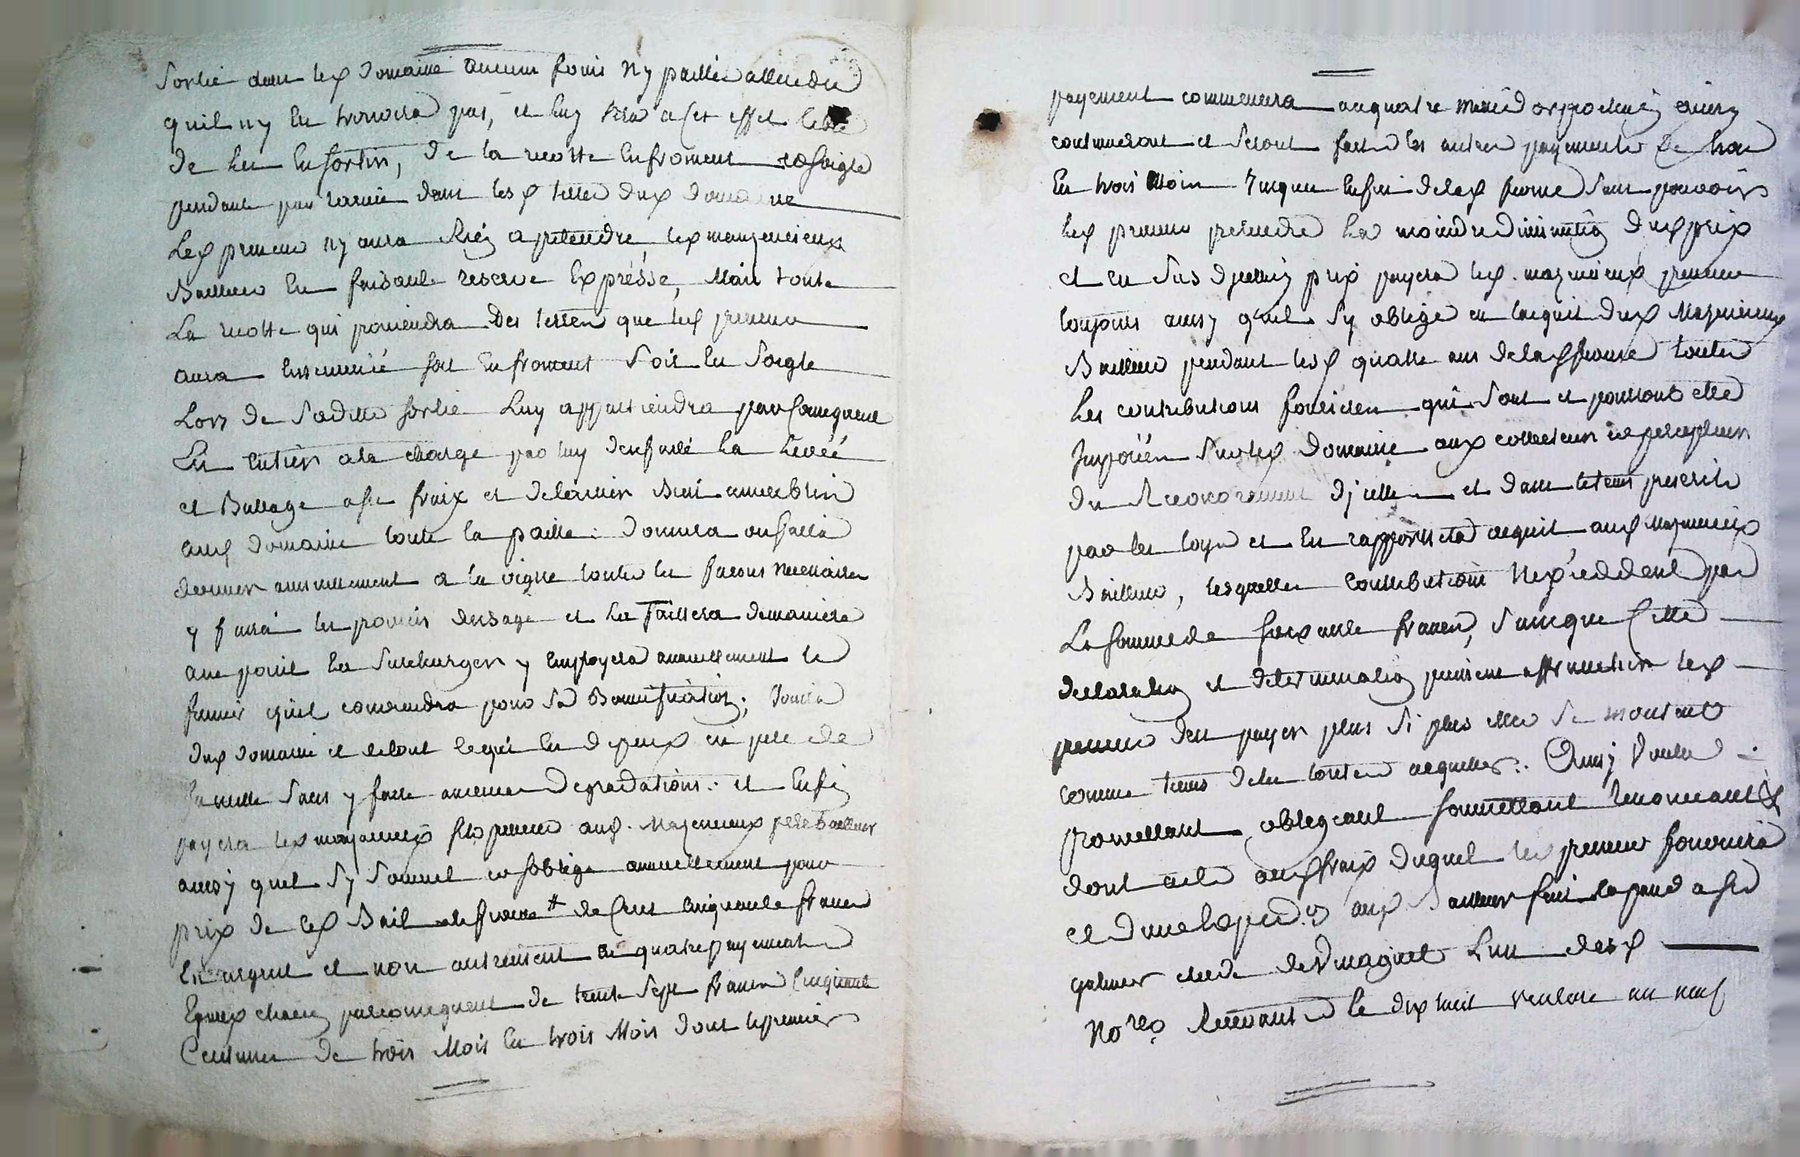 Sortie dans led. domaine aucuns foins ny pailles attendu
quil ny en trouvera pas, et luy sera a cet effet libre
de les en sortir, de la recotte en froment et soigle
pendante par racine dans les d. terres dud. domaine
Led. preneur ny aura Rien a pretendre, les. mazencieux
Bailleur en faisant reserve Expresse, Mais toute
La recotte qui proviendra Des terres que led. preneur
aura ensemencé soit en froment Soit en Soigle
Lors de Saditte sortie Luy appartiendra par consequent
En entier a la charge par luy den faire La Levée
et Battage a ses fraix et de laisser
aud. domaine toute la paille : donnera ou faira
donner annuellement a la vigne toutes les facons necessaires
y faira les provins dusage et La Taillera de maniere
a ne point La Surcharger y Employera annuellement le
fumier quil conviendra pour Sa Bonnification ; Jouira
dud. domaine et de tout ce qui en depend en pere de
famille Sans y faire aucunes Degradations : et Enfin
payera preneur aud. Mazencieux bailleur
ainsy quil Sy Soumet et soblige annuellement pour
prix de led. Bail de ferme de Cent cinquante francs
En argent et non autrement en quatre payements
Egaux chacun par consequent de trente Sept francs Cinquante
Centimes de trois Mois En trois Mois dont le premier
payement commencera au quatre ainsy
continueront et seront faits les autres payements de trois
En trois Mois Jusques Enfin de lad. ferme Sans pouvoir
led. preneur pretendre La moindre diminution dud. prix
et en Sus dycelluy prix payera led. preneur
toujours ainsy quil Sy oblige en lacquit dud. Mazencieux
Bailleur pendant lesd. quatre ans de lad. ferme toutes
Les contributions foncieres qui Sont et pourront etre
Imposées Sur led. Domaine aux collecteurs et percepteurs
du Recouvrement dicelles et dans le tems prescrit
par les loys et En rapportera acquit aud. Mazencieux
Bailleur, lesquelles contributions N'excedent pas
La somme de soixante francs, Sans que Cette
declaration et determination puissent affranchir led.
preneur den payer plus Si plus elles Se montent
comme tenu de les toutes acquitter : Ainsy Voulu
promettant obligeant soumettant renoncant &
dont acte aux fraix duquel led. preneur fournira
aud. Bailleur fait a
L'un desd.
No.res Recevants le dix huit ventose an neuf